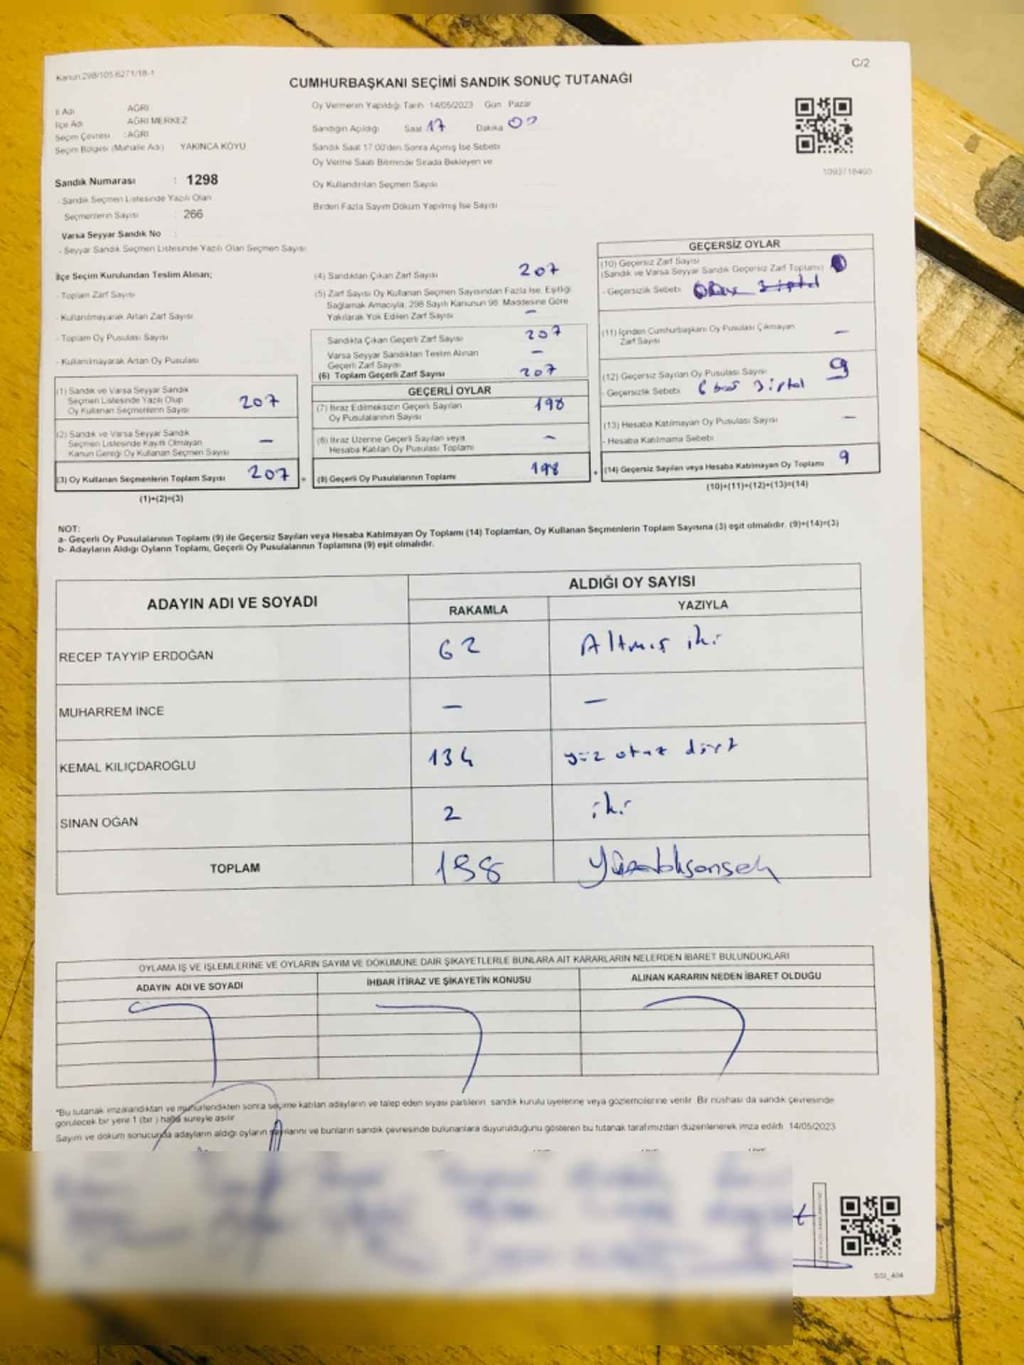 Kanun:298/105,6271/18-1
C/2
CUMHURBAŞKANI SEÇİMİ SANDIK SONUÇ TUTANAĞI
İl Adı AĞRI
İlçe Adı AĞRI MERKEZ
Seçim Çevresi :AĞRI
Seçim Bölgesi (Mahalle Adı) YAKINCA KÖYÜ
Oy Vermenin Yapıldığı Tarih 14/05/2023 Gün Pazar
Sandığın Açıldığı Saat 17 Dakika 00
Sandık Saat 17:00'den Sonra Açılmış İse Sebebi
Oy Verme Saati Bitiminde Sırada Bekleyen ve
Oy Kullandırılan Seçmen Sayısı
Birden Fazla Sayım Döküm Yapılmış İse Sayısı
Sandık Numarası : 1298
- Sandık Seçmen Listesinde Yazılı Olan
Seçmenlerin Sayısı : 266
Varsa Seyyar Sandık No
- Seyyar Sandık Seçmen Listesinde Yazılı Olan Seçmen Sayısı
İlçe Seçim Kurulundan Teslim Alınan;
- Toplam Zarf Sayısı
- Kullanılmayarak Artan Zarf Sayısı
- Toplam Oy Pusulası Sayısı
- Kullanılmayarak Artan Oy Pusulası
(1) Sandık ve Varsa Seyyar Sandık
Seçmen Listesinde Yazılı Olup
Oy Kullanan Seçmenlerin Sayısı 207
(2) Sandık ve Varsa Seyyar Sandık
Seçmen Listesinde Kayıtlı Olmayan
Kanun Gereği Oy Kullanan Seçmen Sayısı –
(3) Oy Kullanan Seçmenlerin Toplam Sayısı 207
(1)+(2)=(3)
(4) Sandıktan Çıkan Zarf Sayısı 207
(5) Zarf Sayısı Oy Kullanan Seçmen Sayısından Fazla İse, Eşitliği
Sağlamak Amacıyla, 298 Sayılı Kanunun 98. Maddesine Göre
Yakılarak Yok Edilen Zarf Sayısı –
Sandıkta Çıkan Geçerli Zarf Sayısı 207
Varsa Seyyar Sandıktan Teslim Alınan
Geçerli Zarf Sayısı –
(6) Toplam Geçerli Zarf Sayısı 207
GEÇERLİ OYLAR
(7) İtiraz Edilmeksizin Geçerli Sayılan
Oy Pusulalarının Sayısı 198
(8) İtiraz Üzerine Geçerli Sayılan veya
Hesaba Katılan Oy Pusulası Toplamı –
(9) Geçerli Oy Pusulalarının Toplamı 198
GEÇERSİZ OYLAR
(10) Geçersiz Zarf Sayısı
(Sandık ve Varsa Seyyar Sandık Geçersiz Zarf Toplamı)
- Geçersizlik Sebebi
(11) İçinden Cumhurbaşkanı Oy Pusulası Çıkmayan
Zarf Sayısı –
(12) Geçersiz Sayılan Oy Pusulası Sayısı 9
- Geçersizlik Sebebi 6 boş 3 iptal
(13) Hesaba Katılmayan Oy Pusulası Sayısı –
- Hesaba Katılmama Sebebi
(14) Geçersiz Sayılan veya Hesaba Katılmayan Oy Toplamı 9
(10)+(11)+(12)+(13)=(14)
NOT:
a- Geçerli Oy Pusulalarının Toplamı (9) ile Geçersiz Sayılan veya Hesaba Katılmayan Oy Toplamı (14) Toplamları, Oy Kullanan Seçmenlerin Toplam Sayısına (3) eşit olmalıdır. (9)+(14)=(3)
b- Adayların Aldığı Oyların Toplamı, Geçerli Oy Pusulalarının Toplamına (9) eşit olmalıdır.
ADAYIN ADI VE SOYADI ALDIĞI OY SAYISI
RAKAMLA YAZIYLA
RECEP TAYYİP ERDOĞAN 62 Altmış iki
MUHARREM İNCE – –
KEMAL KILIÇDAROĞLU 134 yüz otuz dört
SİNAN OĞAN 2 iki
TOPLAM 198
OYLAMA İŞ VE İŞLEMLERİNE VE OYLARIN SAYIM VE DÖKÜMÜNE DAİR ŞİKAYETLERLE BUNLARA AİT KARARLARIN NELERDEN İBARET BULUNDUKLARI
ADAYIN ADI VE SOYADI İHBAR İTİRAZ VE ŞİKAYETİN KONUSU ALINAN KARARIN NEDEN İBARET OLDUĞU
*Bu tutanak imzalandıktan ve mühürlendikten sonra seçime katılan adayların ve talep eden siyasi partilerin sandık kurulu üyelerine veya gözlemcilerine verilir. Bir nüshası da sandık çevresinde
görülecek bir yere 1 (bir) hafta süreyle asılır.
Sayım ve döküm sonucunda adayların aldığı oyların sayılarını ve bunların sandık çevresinde bulunanlara duyurulduğunu gösteren bu tutanak tarafımızdan düzenlenerek imza edildi. 14/05/2023